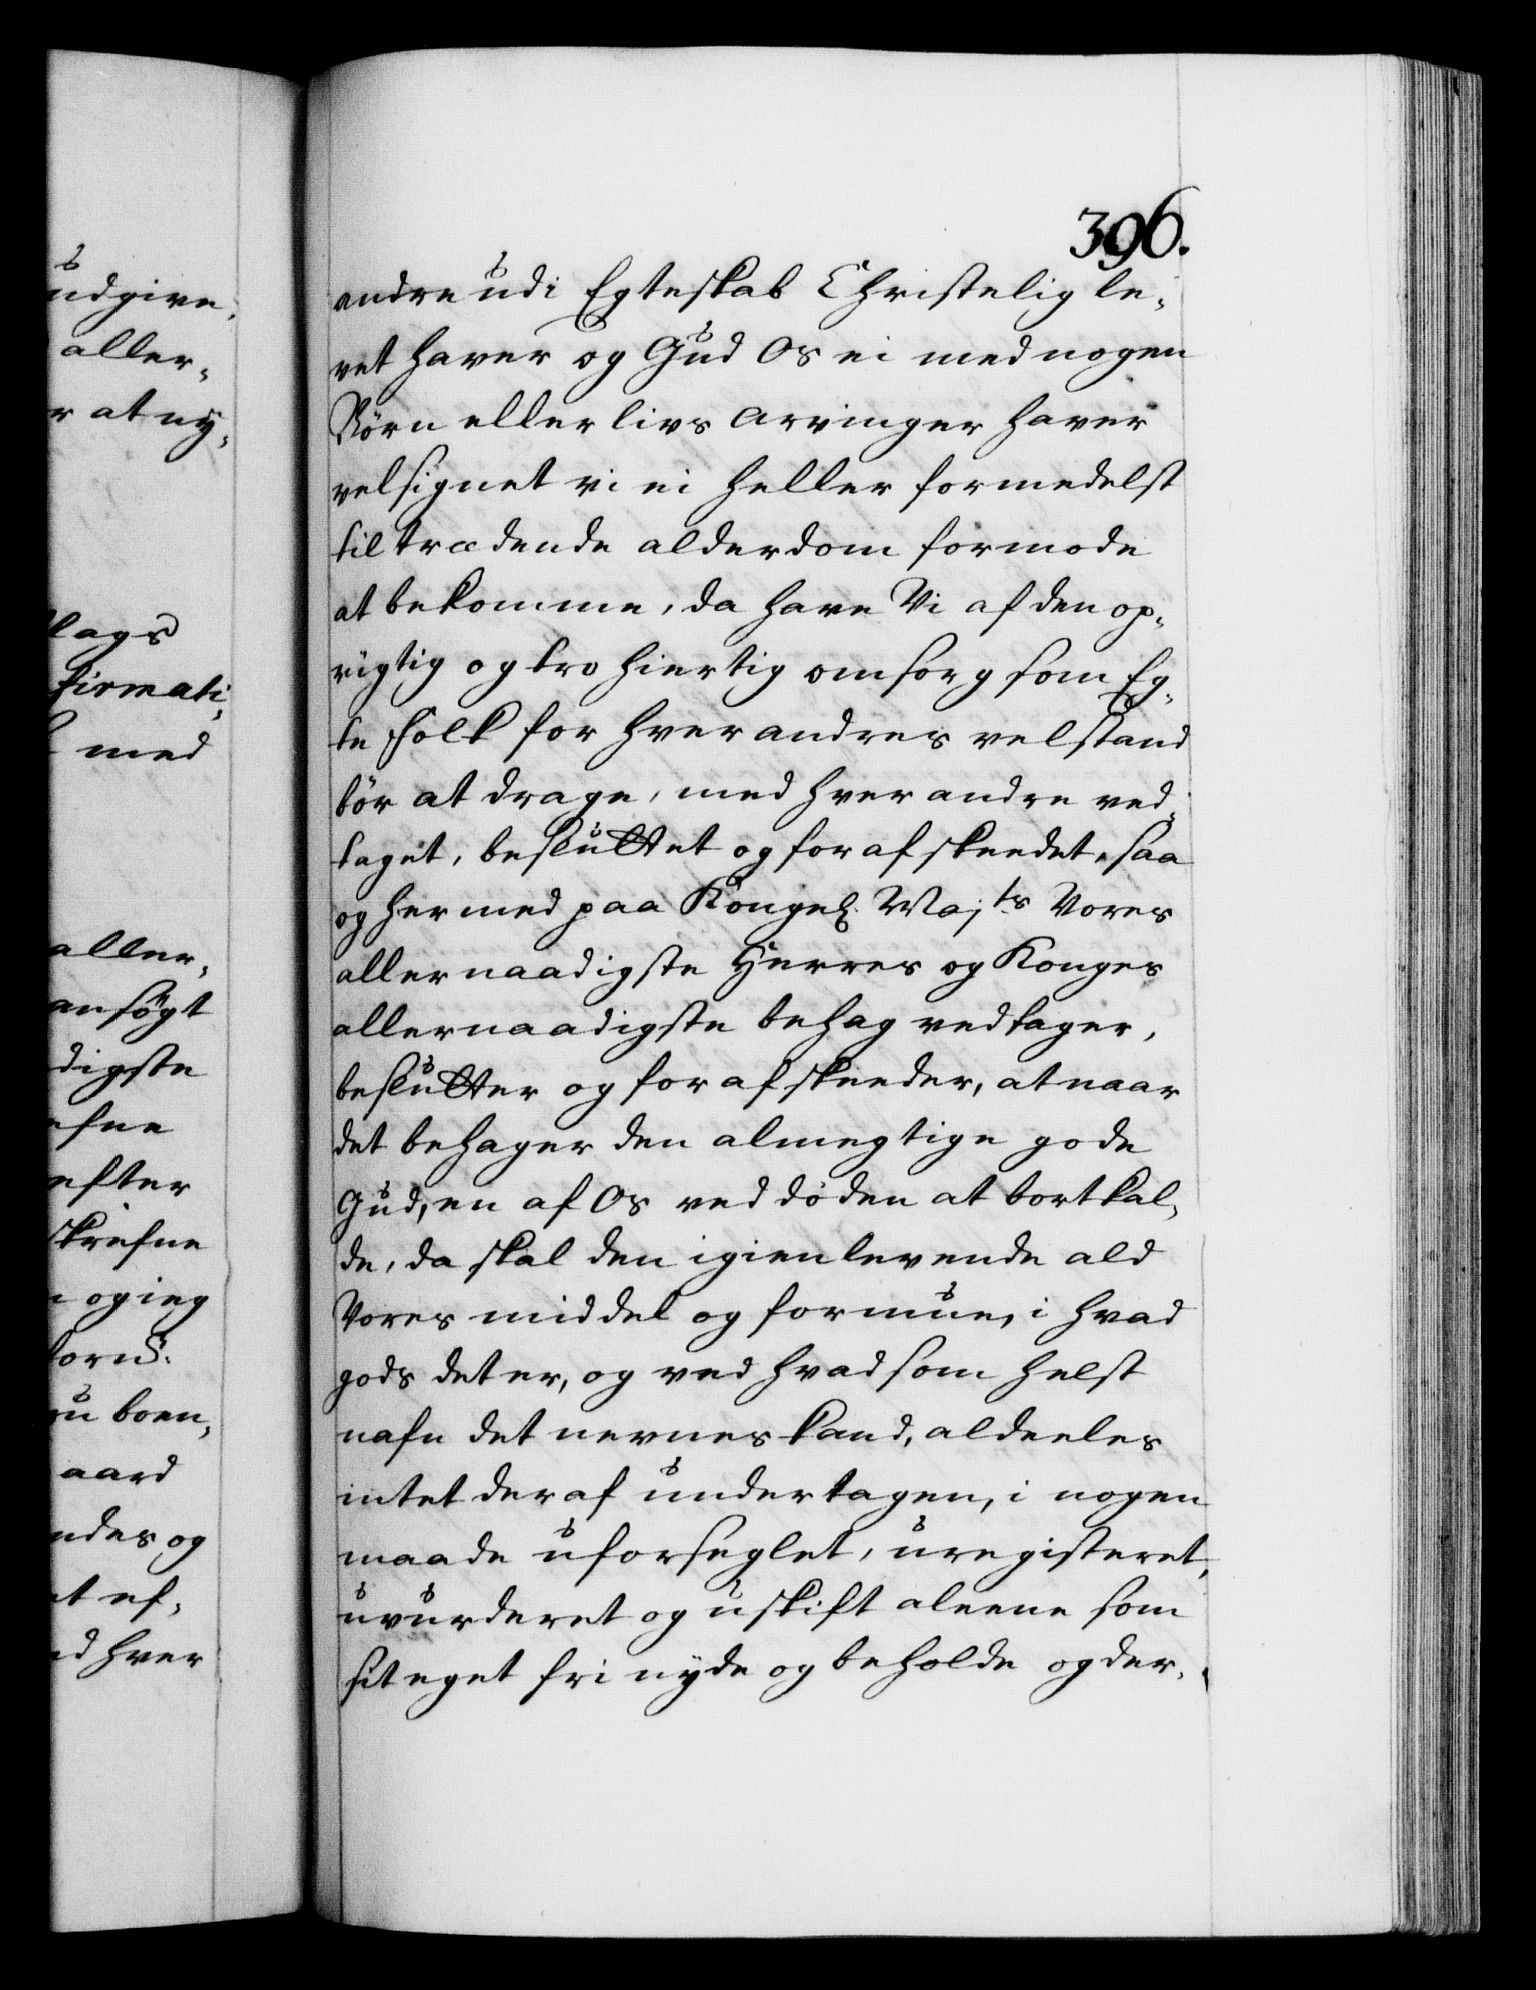 udgive,
aller-
r at ny-
lags
firmati-
med
aller-
ansøgt
digste
efne
efter
skrefne
og ieg
boen-
aard
ndes og
t ef-
d hver
396.
andre udi Egteskab Christelig le-
vet haver og Gud Os ei med nogen
Börn eller livs arvinger haver
velsignet vi ei heller formedelst
tiltrædende alderdom formode
at bekomme, da have Vi af den op-
rigtig og tro hiertig omsorg som Eg-
te folk for hverandres velstand
bör at drage, med hverandre ved-
taget, besluttet og forafskeedet, saa
og hermed paa Kongel. Majts Vores
allernaadigste Herres og Konges
allernaadigste behag vedtager,
beslutter og forafskeeder, at naar
det behager den almegtige gode
Gud, en af Os ved döden at bortkal-
de, da skal den igienlevende ald
Vores middel og formue, i hvad
gods det er, og ved hvad som helst
nafn det nevnes kand, aldeeles
intet deraf undertagen, i nogen
maade uforseglet, uregisteret,
uvurderet og uskift aleene som
sit eget fri nyde og beholde og der-